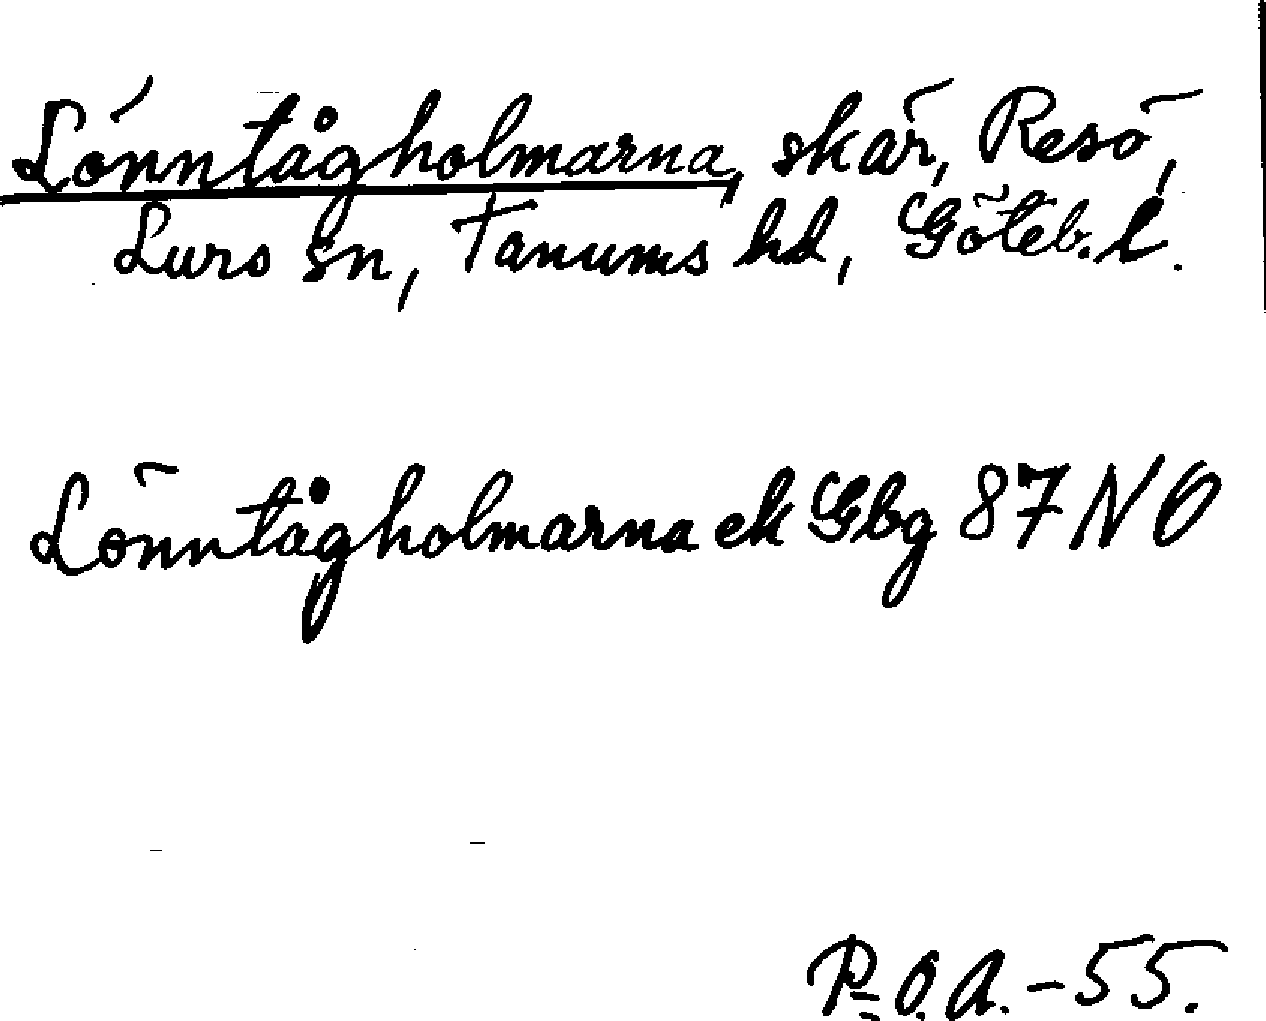 Lönntågholmarna, skär, Resö,
Lurs sn, Tanums hd, Göteb. l.
Lönntågholmarna ek Gbg 87 NO
P.O.A. -55.